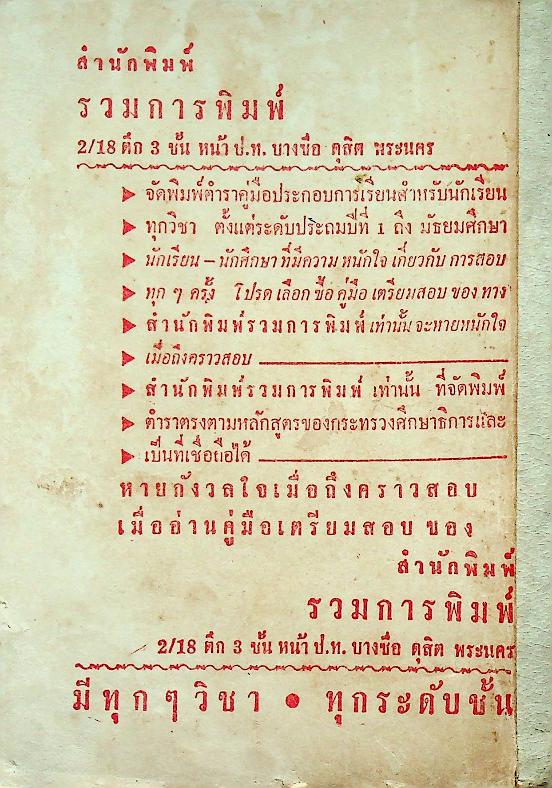 สำนักพิมพ์
รวมการพิมพ์
2/18 ตึก 3 ชั้น หน้า ป.ท. บางซื่อ ดุสิต พระนคร
จัดพิมพ์ตำราคู่มือประกอบการเรียนสำหรับนักเรียน
ทุกวิชา ตั้งแต่ระดับประถมปีที่ 1 ถึง มัธยมศึกษา
นักเรียน – นักศึกษา ที่มีความ หนักใจ เกี่ยวกับ การสอบ
ทุก ๆ ครั้ง โปรด เลือก ซื้อ คู่มือ เตรียมสอบ ของ ทาง
สำนักพิมพ์รวมการพิมพ์ เท่านั้น จะหายหนักใจ
เมื่อถึงคราวสอบ
สำนักพิมพ์รวมการพิมพ์ เท่านั้น ที่จัดพิมพ์
ตำราตรงตามหลักสูตรของกระทรวงศึกษาธิการและ
เป็นที่เชื่อถือได้
หายกังวลใจเมื่อถึงคราวสอบ
เมื่ออ่านคู่มือเตรียมสอบ ของ
สำนักพิมพ์
รวมการพิมพ์
2/18 ตึก 3 ชั้น หน้า ป.ท. บางซื่อ ดุสิต พระนคร
มีทุกๆวิชา • ทุกระดับชั้น